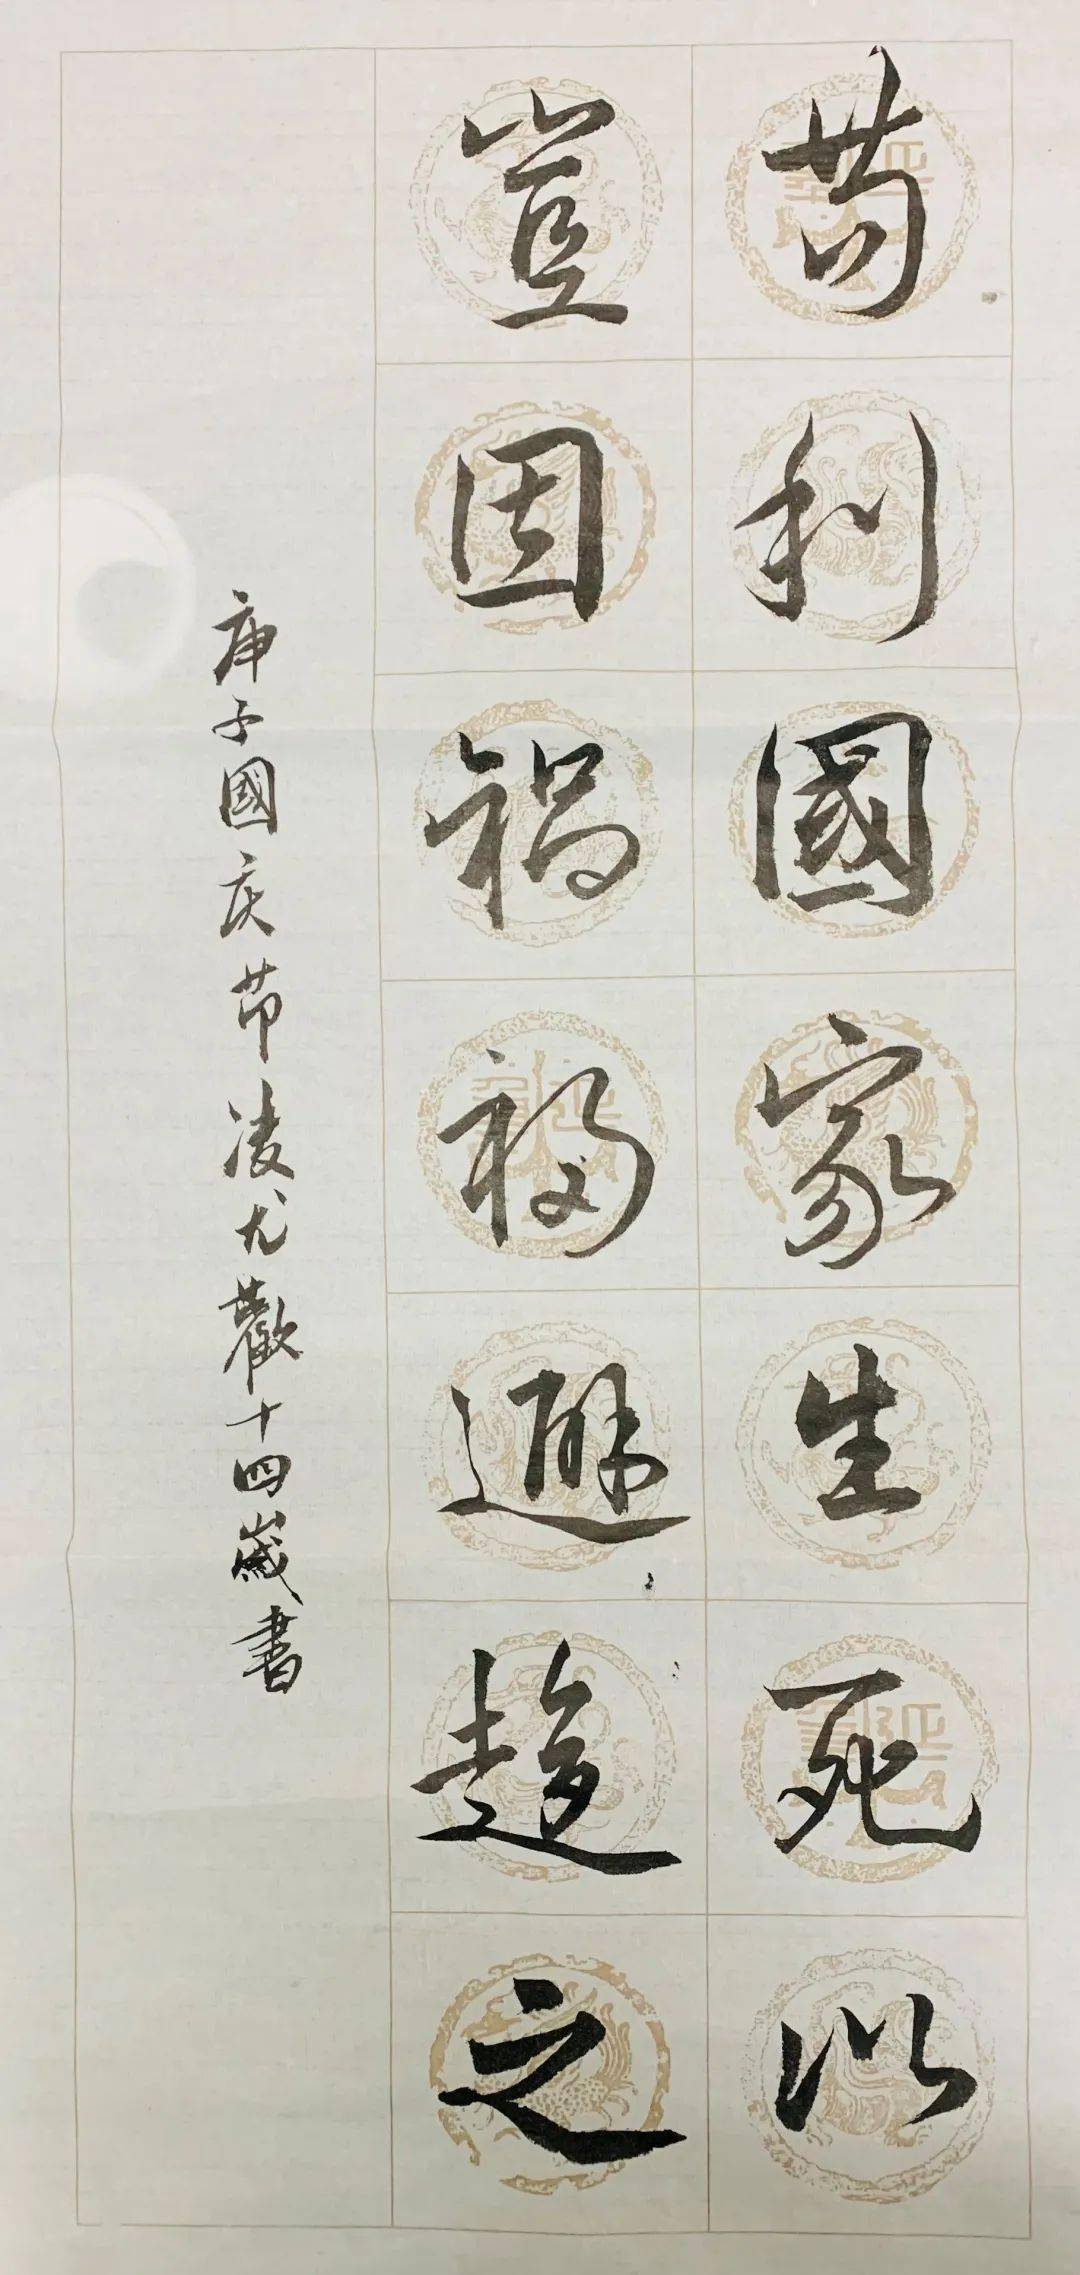 苟利國家生死以
豈因禍福避趨之
庚子國庆节凌尤歡十四歲書